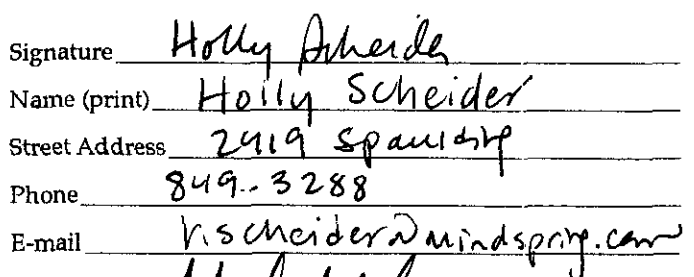 Signature Holly Scheider
Name (print) Holly Scheider
Street Address 2419 Spaulding
Phone 849-3288
E-mail r.scheider@mindspring.com